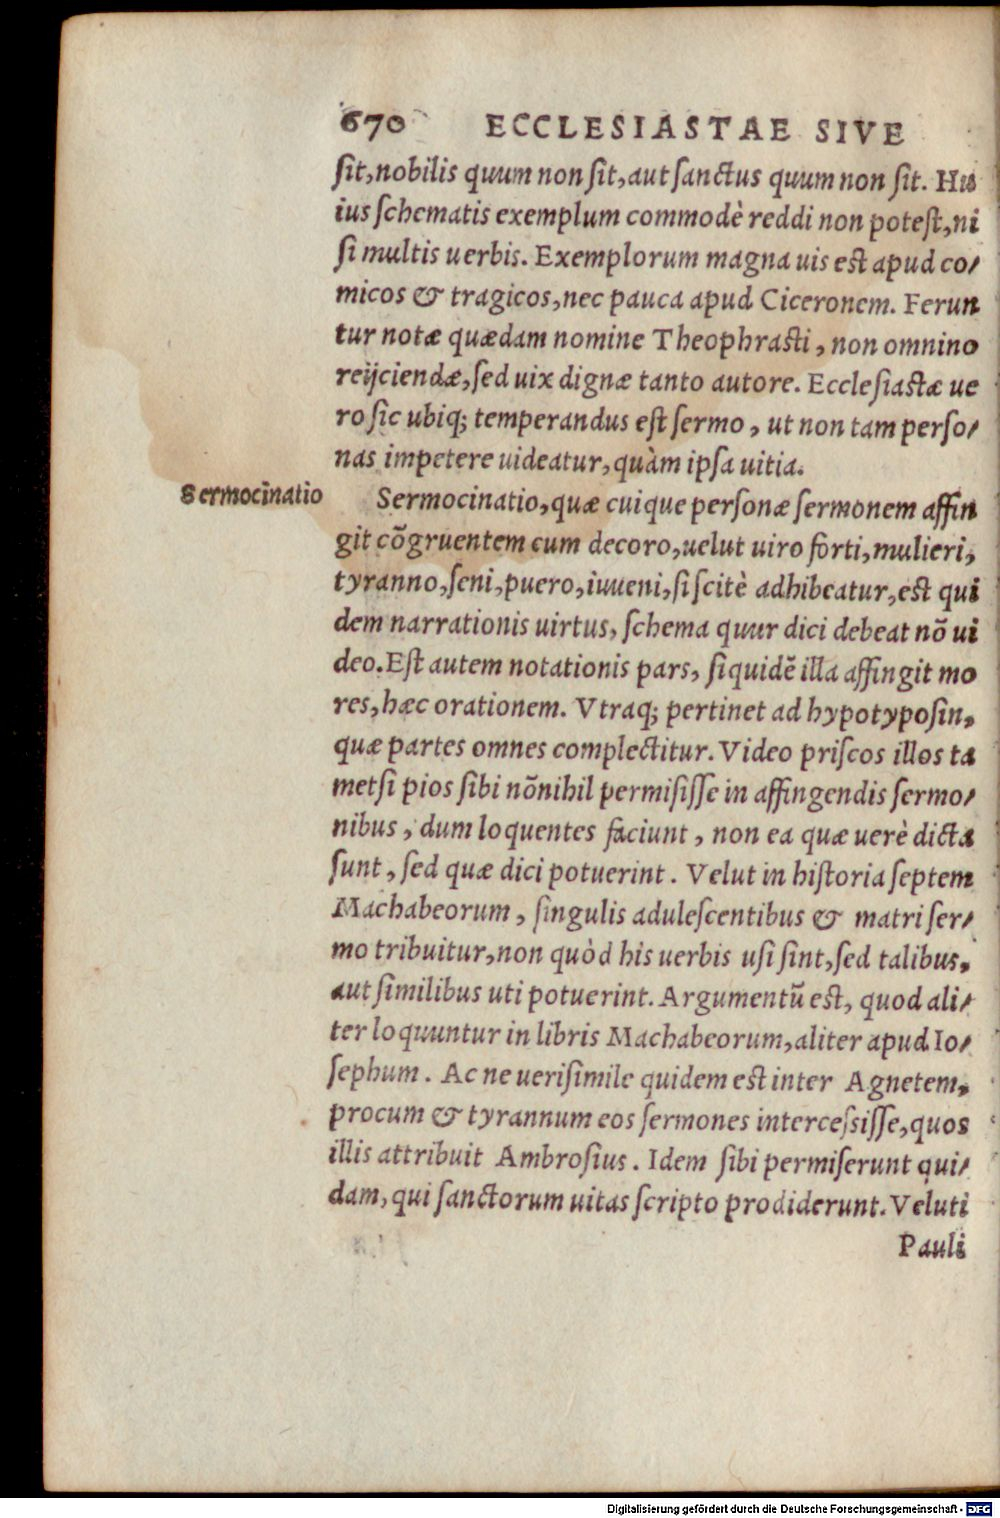 670 ECCLESIASTAE SIVE
sit, nobilis quum non sit, aut sanctus quum non sit. Hu
ius schematis exemplum commodè reddi non potest, ni
si multis uerbis. Exemplorum magna uis est apud co-
micos & tragicos, nec pauca apud Ciceronem. Ferun
tur notæ quædam nomine Theophrasti, non omnino
reijciendæ, sed uix dignæ tanto autore. Ecclesiastæ ue
ro sic ubiq; temperandus est sermo, ut non tam perso-
nas impetere uideatur, quàm ipsa uitia.
Sermocinatio
Sermocinatio, quæ cuique personæ sermonem affin
git cõgruentem cum decoro, uelut uiro forti, mulieri,
tyranno, seni, puero, iuueni, si scitè adhibeatur, est qui
dem narrationis uirtus, schema quur dici debeat nõ ui
deo. Est autem notationis pars, siquidẽ illa affingit mo
res, hæc orationem. Vtraq; pertinet ad hypotyposin,
quæ partes omnes complectitur. Video priscos illos ta
metsi pios sibi nõnihil permisisse in affingendis sermo-
nibus, dum loquentes faciunt, non ea quæ uerè dicta
sunt, sed quæ dici potuerint. Velut in historia septem
Machabeorum, singulis adulescentibus & matri ser-
mo tribuitur, non quòd his uerbis usi sint, sed talibus,
aut similibus uti potuerint. Argumentũ est, quod ali-
ter loquuntur in libris Machabeorum, aliter apud Io-
sephum. Ac ne uerisimile quidem est inter Agnetem,
procum & tyrannum eos sermones intercessisse, quos
illis attribuit Ambrosius. Idem sibi permiserunt qui-
dam, qui sanctorum uitas scripto prodiderunt. Veluti
Pauli
Digitalisierung gefördert durch die Deutsche Forschungsgemeinschaft - DFG